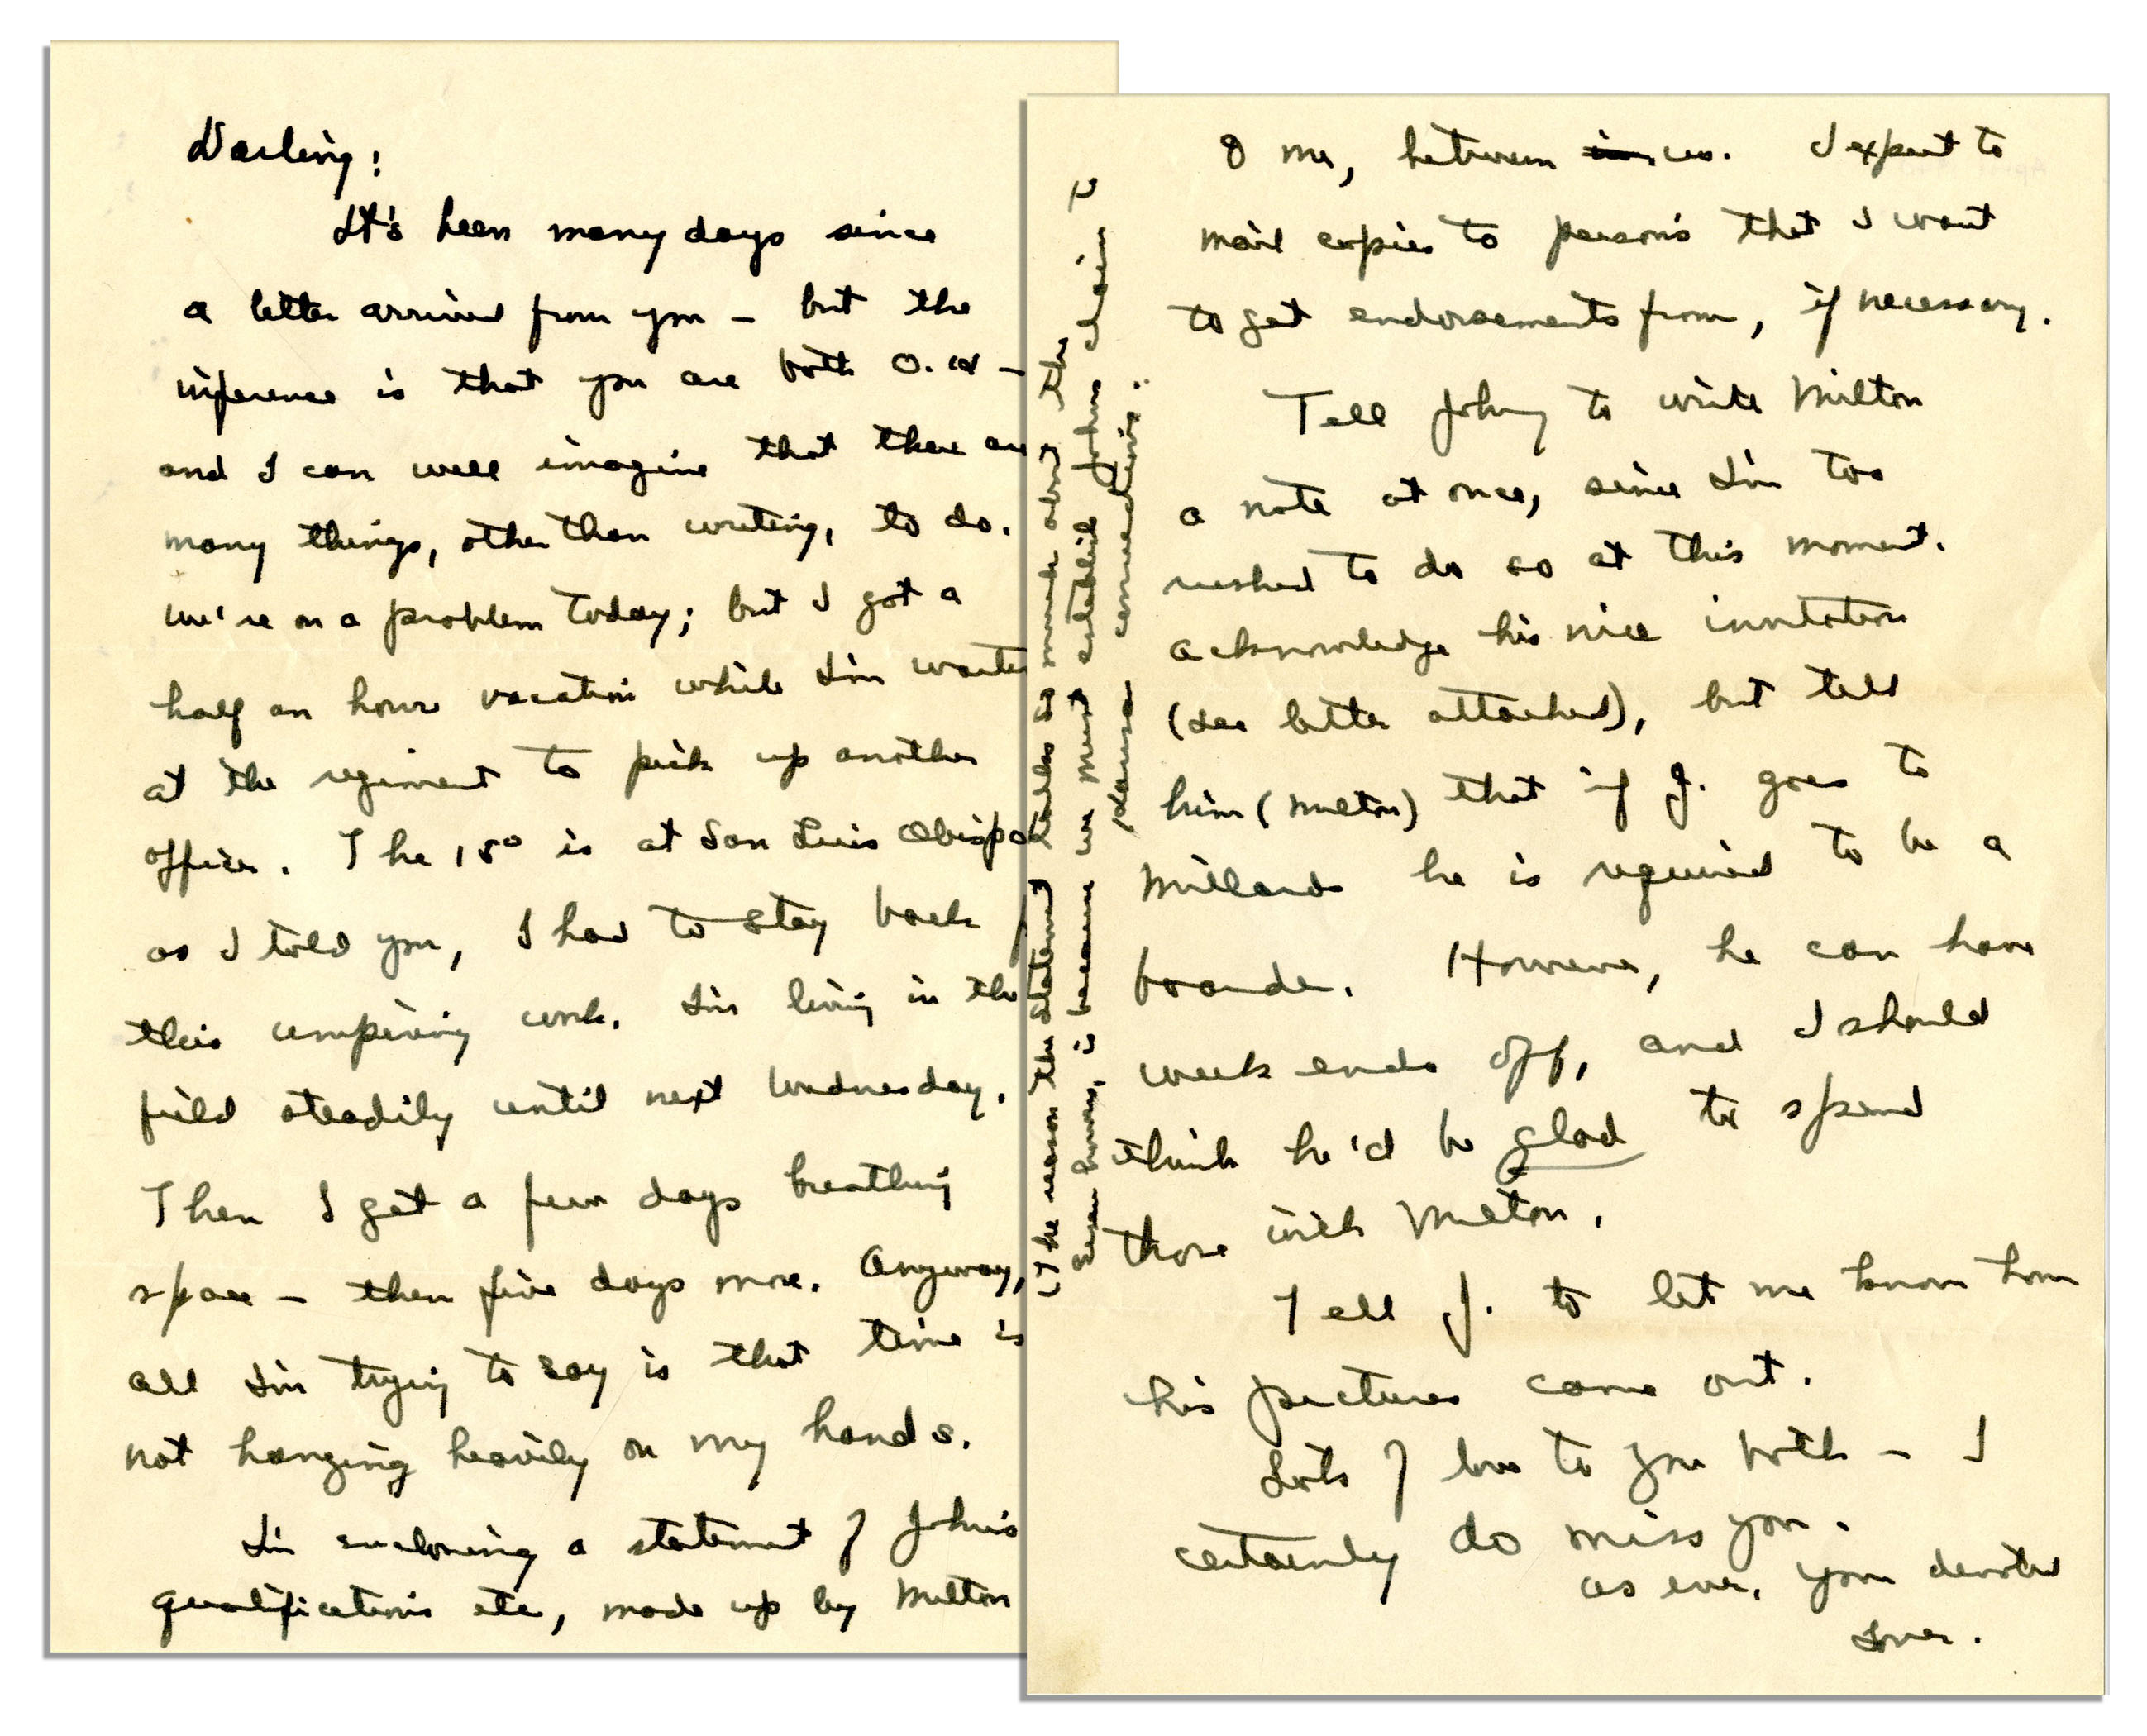 Darling:
It's been many days since
a letter arrived from you – but the
inference is that you are both O.K –
and I can well imagine that there are
many things, other than writing, to do.
We're on a problem today; but I got a
half an hour vacation while I'm waiting
at the regiment to pick up another
officer. The 15° is at San Luis Obispo
as I told you, I had to stay back
this umpiring work. I'm living in the
field steadily until next Wednesday.
Then I get a few days breathing
space – then five days more. Anyway,
all I'm trying to say is that time is
not hanging heavily on my hands.
I'm enclosing a statement of John's
qualifications etc, made up by Milton
(The reason the statement talks so much about the
Kansas, is because we must establish John's claim to
Kansas connections.)
& me, between us. I expect to
mail copies to persons that I want
to get endorsements from, if necessary.
Tell Johnny to write Milton
a note at once, since I'm too
rushed to do so at this moment.
acknowledge his nice invitation
(see letter attached), but tell
him (Milton) that if J. goes to
Millards he is required to be a
boarder. However, he can have
week ends off, and I should
think he'd be glad to spend
those with Milton.
Tell J. to let me know how
his pictures came out.
Lots of love to you both – I
certainly do miss you.
As ever, your devoted
Lover.